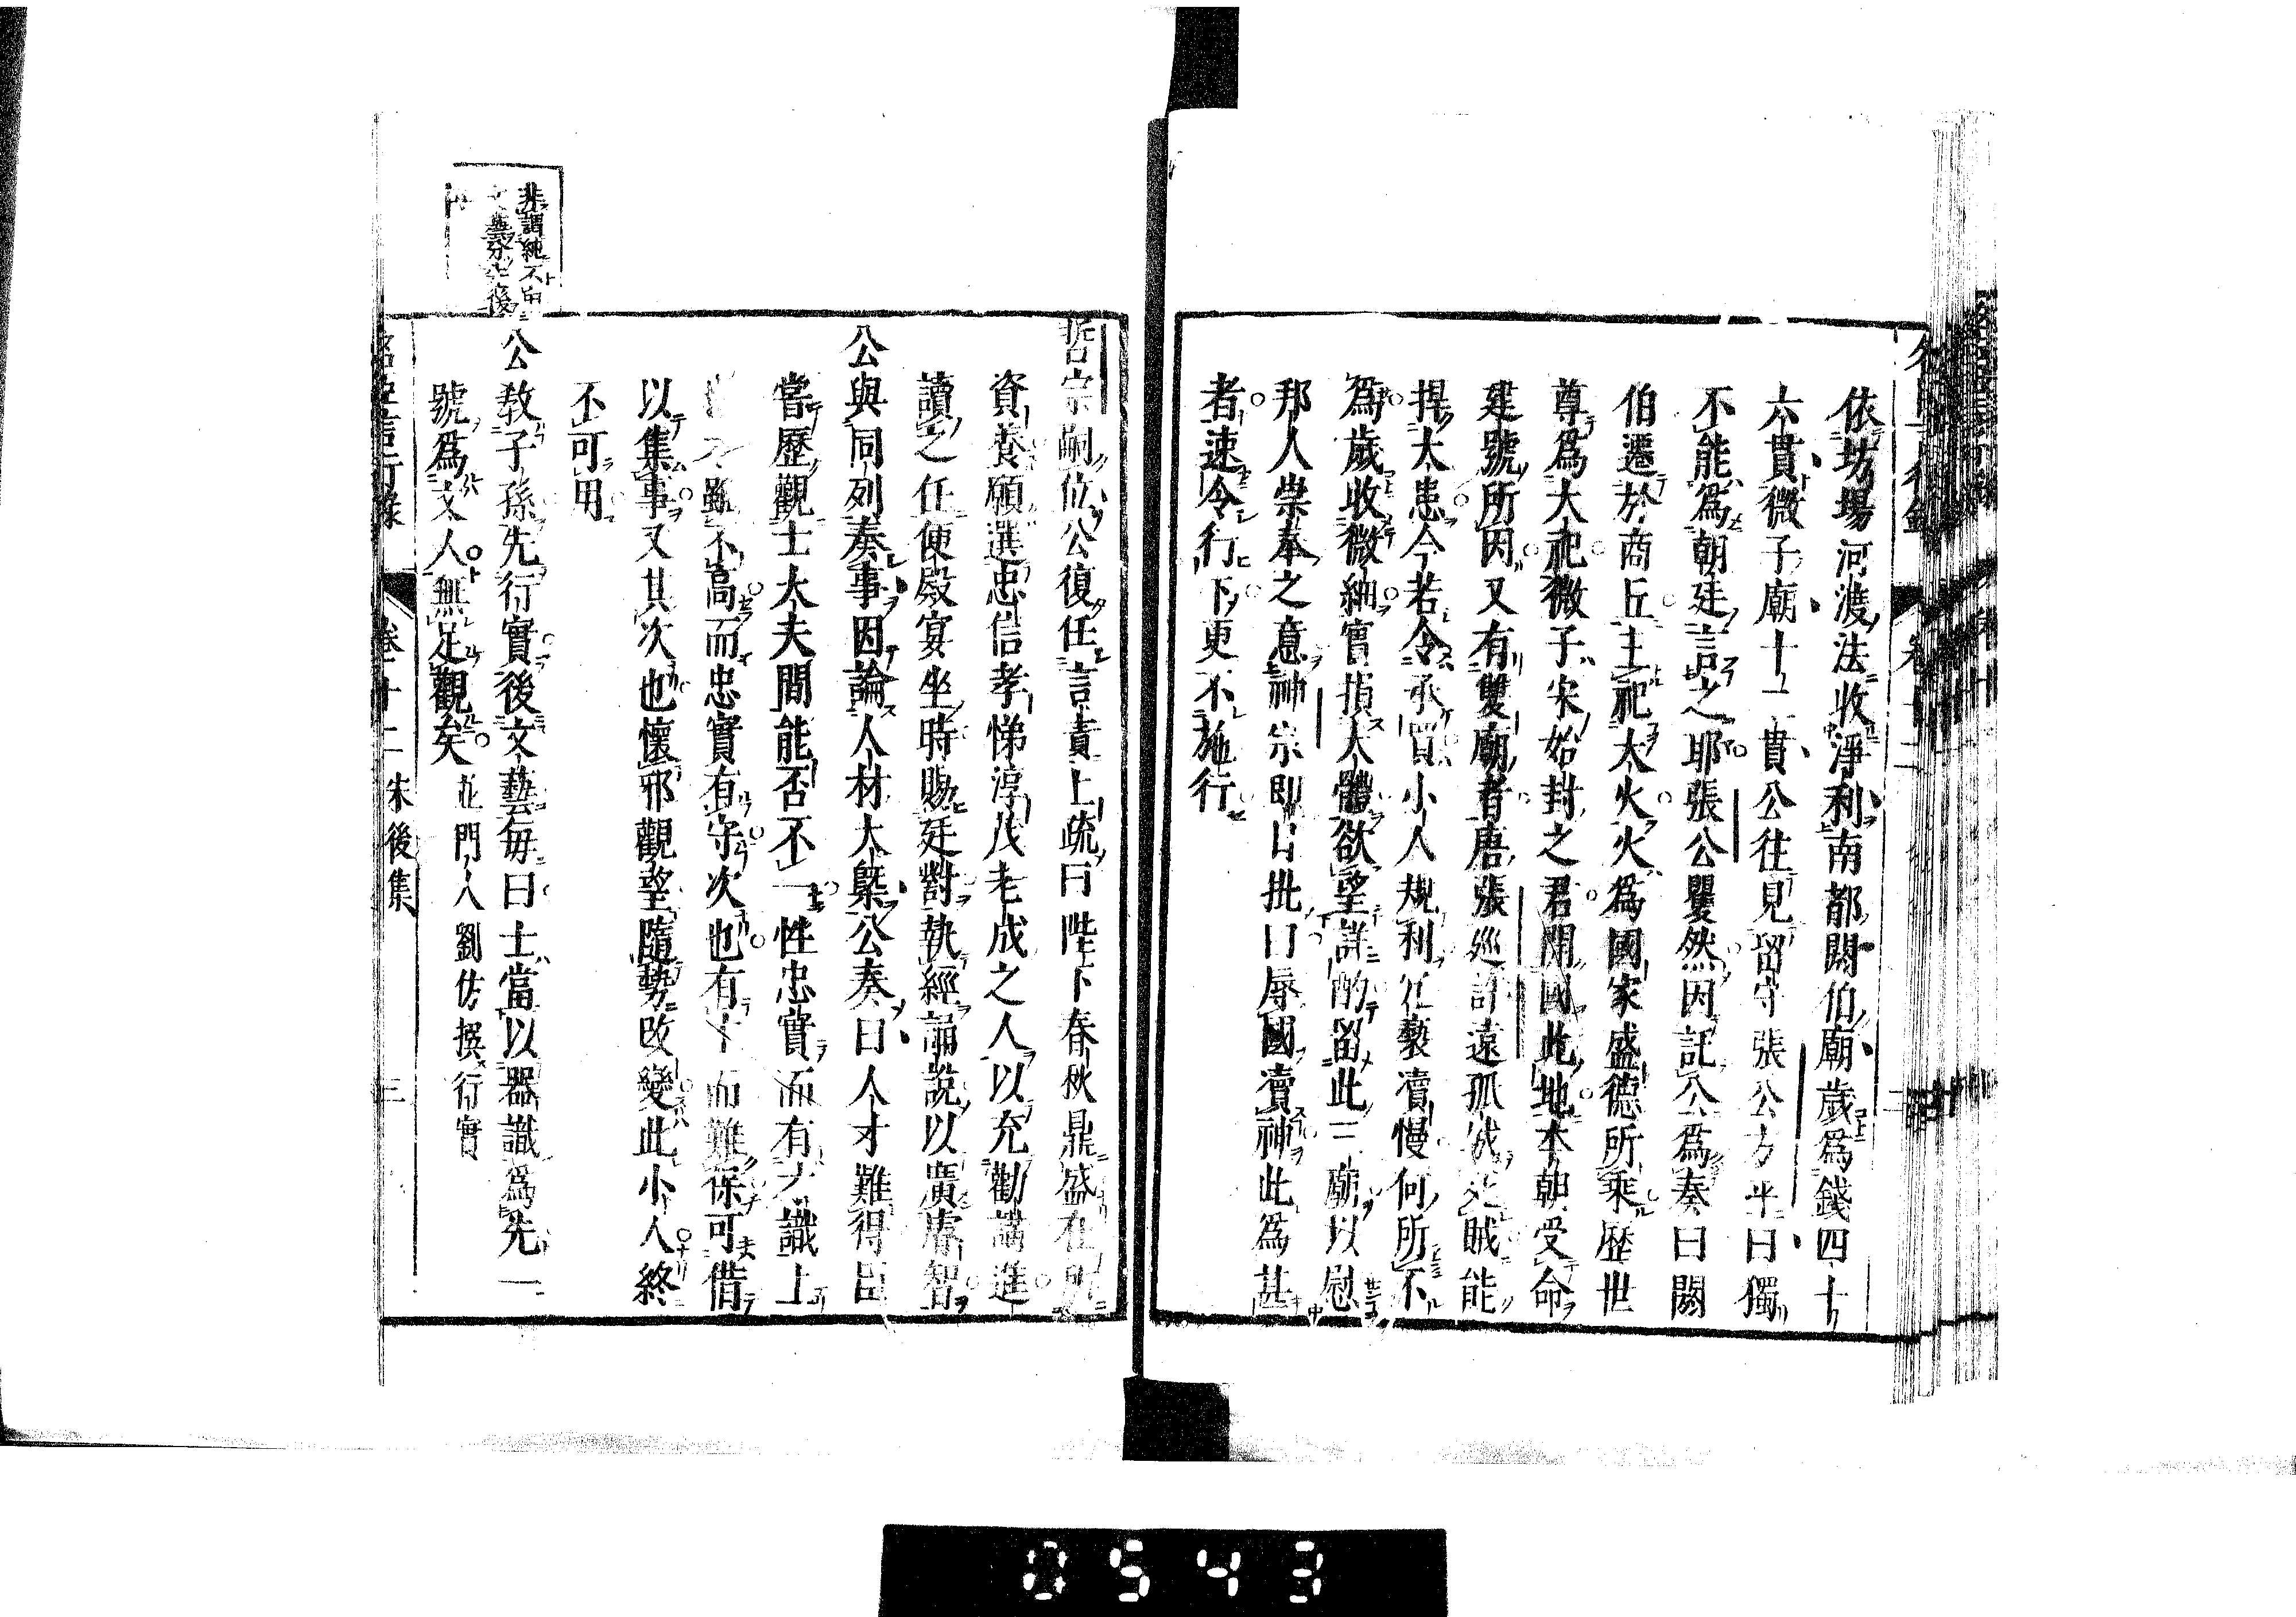 依坊場河渡法收淨利南都閼伯廟歲為錢四十
六貫微子廟十二貫公往見留守張公方平曰獨
不能為朝廷言之耶張公矍然因託公為奏曰閼
伯遷於商丘主祀大火火為國家盛德所乘歷世
尊為大祀微子宋始封之君開國此地本朝受命
建號所因又有雙廟者唐張巡許遠孤城死賊能
捍大患今若令承買小人規利冗褻瀆慢何所不
為歲收微細實損大體欲望詳酌留此三廟以慰
邦人崇奉之意神宗即日批曰辱國瀆神此為甚
者速令行下更不施行
哲宗嗣位公復任言責上疏曰陛下春秋鼎盛在所
資養願選忠信孝悌淳茂老成之人以充勸講進
讀之任便殿宴坐時賜延對執經誦說以廣睿智
公與同列奏事因論人材大槩公奏曰人才難得臣
嘗歷觀士大夫間能否不一性忠實而有才識上
也才雖不高而忠實有守次也有才而難保可借
以集事又其次也懷邪觀望隨勢改變此小人終
不可用
公教子孫先行實後文藝每曰士當以器識為先一
號為文人無足觀矣 並門人劉仿撰行實
非謂純不由
文藝分先後
名臣言行錄 卷十二 宋後集 三